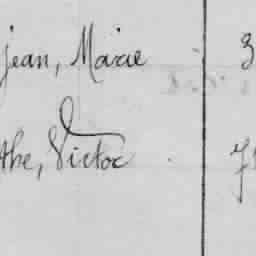 jean, Marie 3
the, Victor